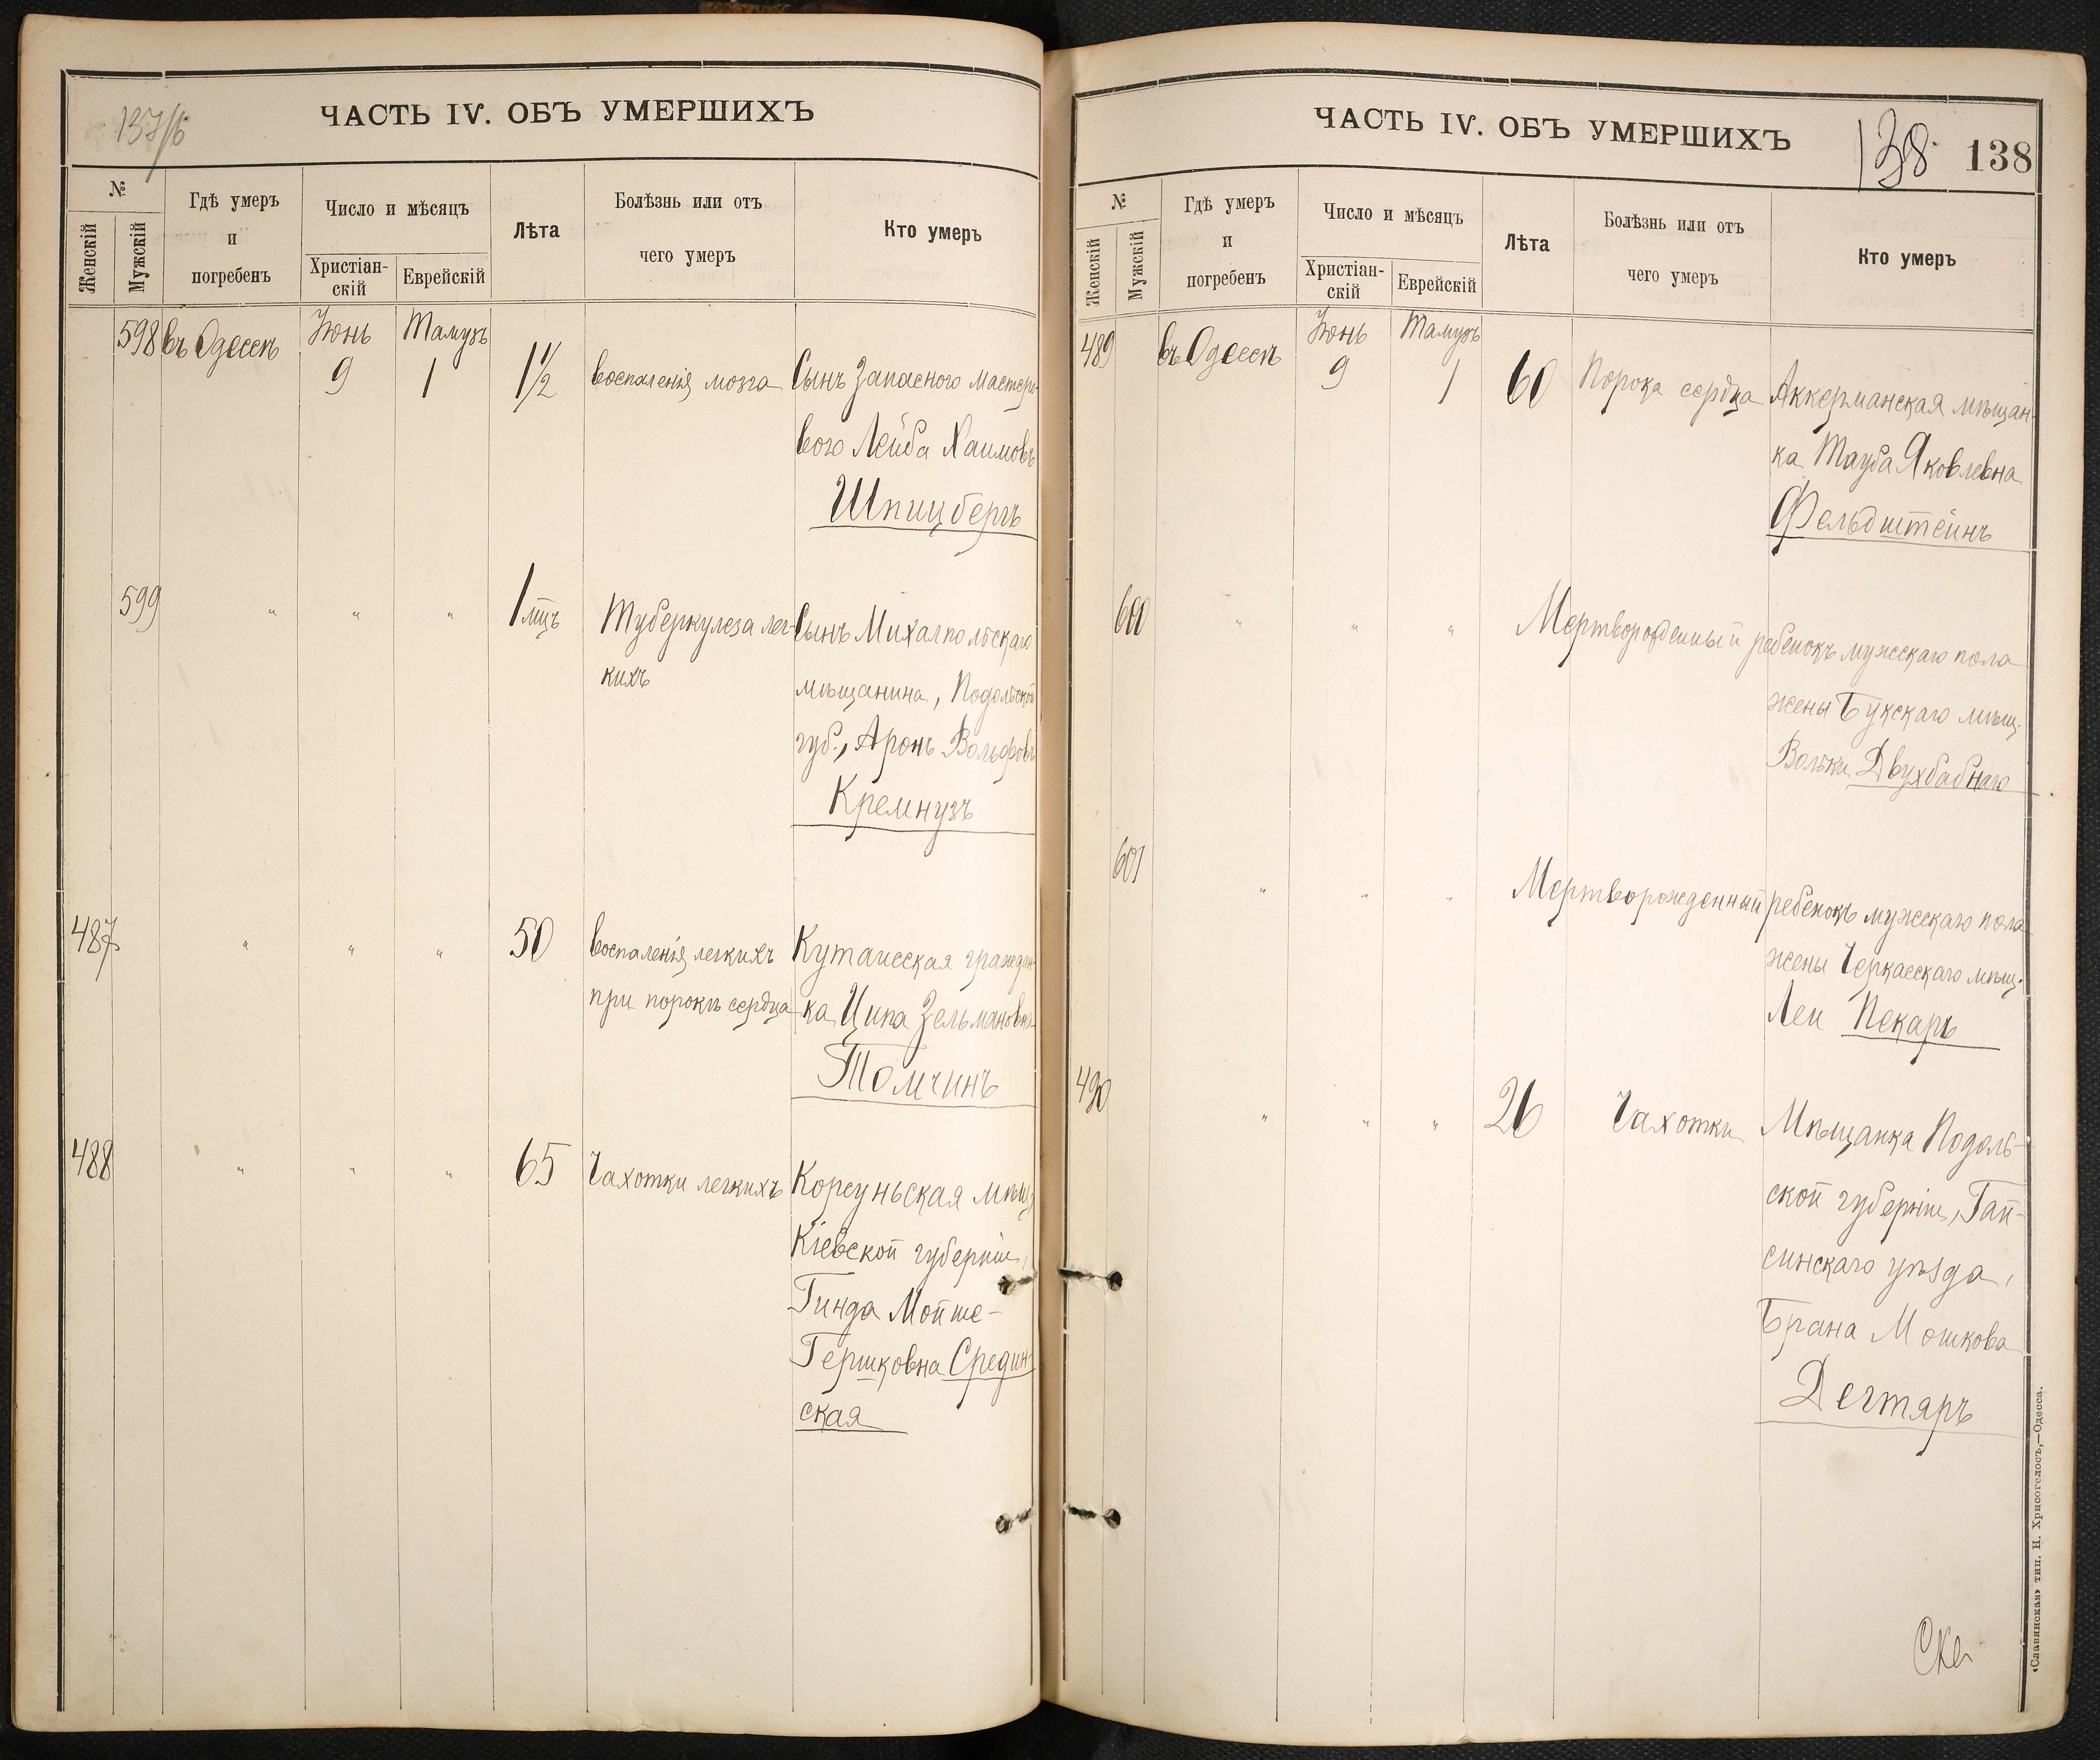 137/б
ЧАСТЬ IV. ОБЪ УМЕРШИХЪ
№
Женскій
Мужскій
Гдѣ умеръ
и
погребенъ
Число и мѣсяцъ
Христіан-
скій
Еврейскій
Лѣта
Болѣзнь или отъ
чего умеръ
Кто умеръ
598 въ Одессѣ Іюнь Тамузъ
9 1 1½ воспаленія мозга Сынъ Запасного мастеро-
вого Лейба Хаимовъ
Шпицбергъ
599 " " " 1 мцъ Туберкулеза лег- Сынъ Михалпольскаго
кихъ мѣщанина, Подольской
губ., Аронъ Вольфовъ
Кремнузъ
487 " " " 50 воспаленія легкихъ Кутаисская граждан-
при порокѣ сердца ка Ципа Зельмановна
Томчинъ
488 " " " 65 Чахотки легкихъ Корсуньская мѣщ.
Кіевской губерніи,
Гинда Мойше-
Гершковна Средин-
ская
ЧАСТЬ IV. ОБЪ УМЕРШИХЪ
138. 138
№
Женскій
Мужскій
Гдѣ умеръ
и
погребенъ
Число и мѣсяцъ
Христіан-
скій
Еврейскій
Лѣта
Болѣзнь или отъ
чего умеръ
Кто умеръ
489 въ Одессѣ Іюнь Тамузъ
9 1 60 Порока сердца Аккерманская мѣщан-
ка Тауба Яковлевна
Фельдштейнъ
600 " " " Мертворожденный ребенокъ мужскаго пола
жены Букскаго мѣщ.
Вольки Двухбабнаго
601 " " " Мертворожденный ребенокъ мужскаго пола
жены Черкасскаго мѣщ.
Леи Пекарь
490 " " " 26 Чахотки Мѣщанка Подоль-
ской губерніи, Гай-
синскаго уѣзда,
Брана Мошкова
Дегтяръ
«Славянская» тип. Н. Хрисогелосъ,—Одесса.